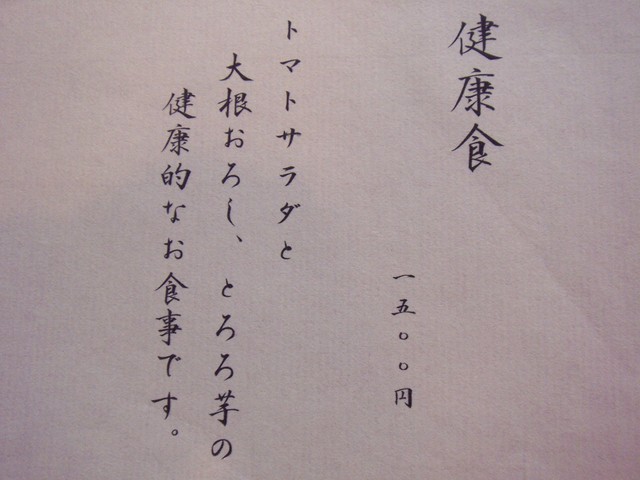 健康食
一五〇〇円
トマトサラダと
大根おろし、とろろ芋の
健康的なお食事です。